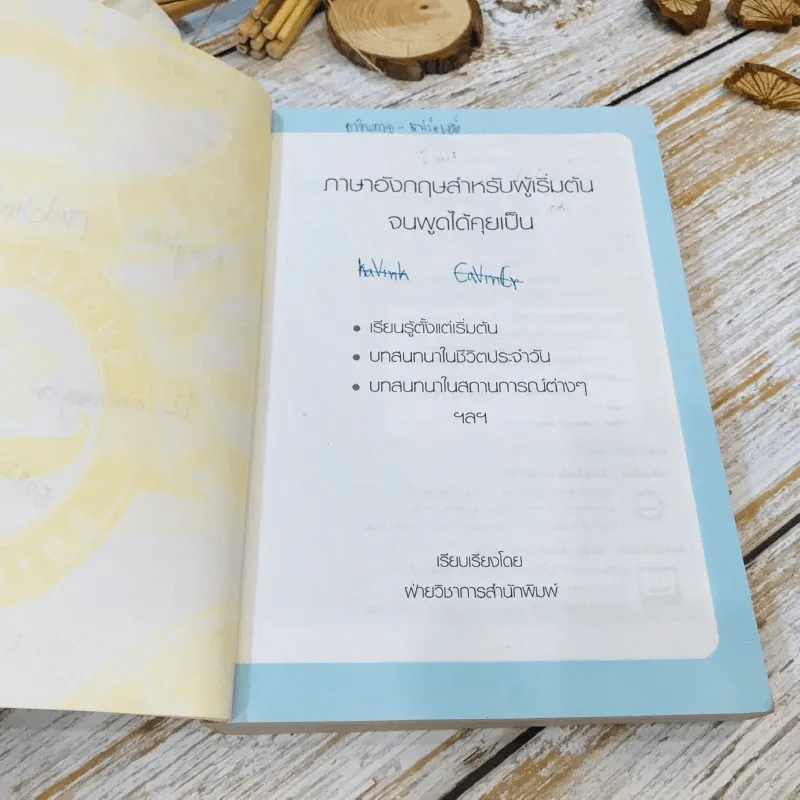 ภาษาอังกฤษสำหรับผู้เริ่มต้น
จนพูดได้คุยเป็น
Kavink EavinEr
• เรียนรู้ตั้งแต่เริ่มต้น
• บทสนทนาในชีวิตประจำวัน
• บทสนทนาในสถานการณ์ต่างๆ
ฯลฯ
เรียบเรียงโดย
ฝ่ายวิชาการสำนักพิมพ์